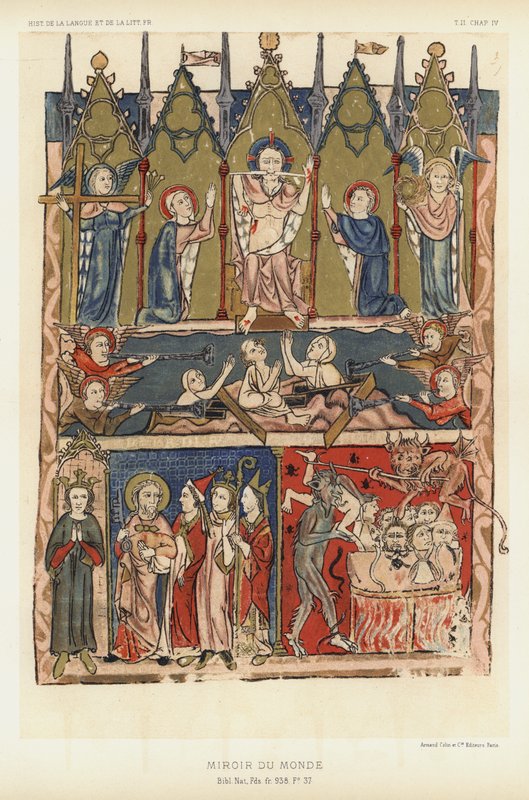 HIST. DE LA LANGUE ET DE LA LITT. FR.
T. II. CHAP. IV
Armand Colin et Cie Editeurs. Paris
MIROIR DU MONDE
Bibl. Nat., Fds. fr. 938. F° 37